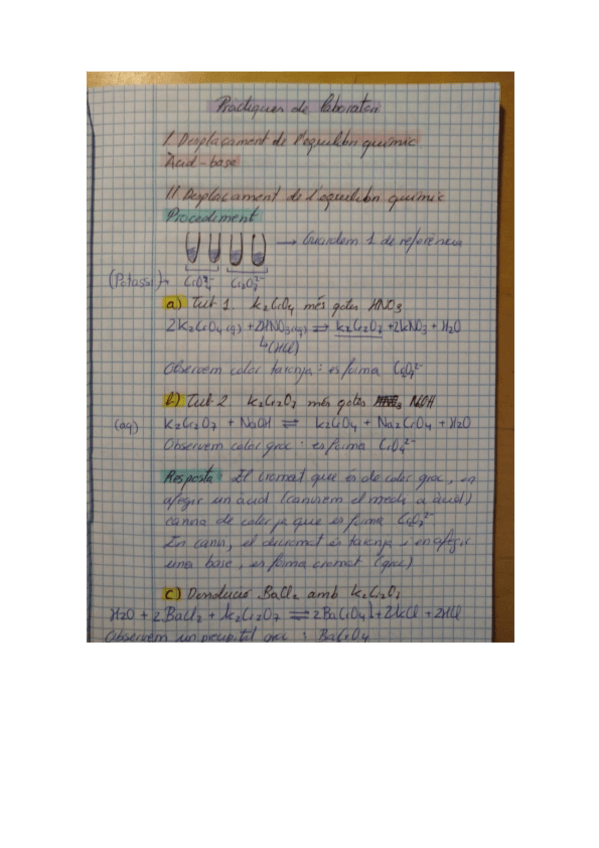 Pràctiques de laboratori
I. Desplaçament de l'equilibri químic
Àcid-base
I.I Desplaçament de l'equilibri químic
Procediment
→ Guardem 1 de referència
(Potassi)→ CrO₄²⁻ Cr₂O₇²⁻
a) Tub 1. K₂CrO₄ més gotes HNO₃
2K₂CrO₄(aq) + 2HNO₃(aq) ⇌ K₂Cr₂O₇ + 2KNO₃ + H₂O
↳(HCl)
Observem color taronja: es forma Cr₂O₇²⁻
b) Tub 2. K₂Cr₂O₇ més gotes NaOH
(aq) K₂Cr₂O₇ + NaOH ⇌ K₂CrO₄ + Na₂CrO₄ + H₂O
Observem color groc: es forma CrO₄²⁻
Resposta: El cromat que és de color groc, en
afegir un àcid (canviem el medi a àcid)
canvia de color ja que es forma Cr₂O₇²⁻
En canvi, el dicromat és taronja i en afegir
una base, es forma cromat (groc)
c) Dissolució BaCl₂ amb K₂Cr₂O₇
H₂O + 2BaCl₂ + K₂Cr₂O₇ ⇌ 2BaCrO₄↓ + 2KCl + 2HCl
Observem un precipitat groc: BaCrO₄